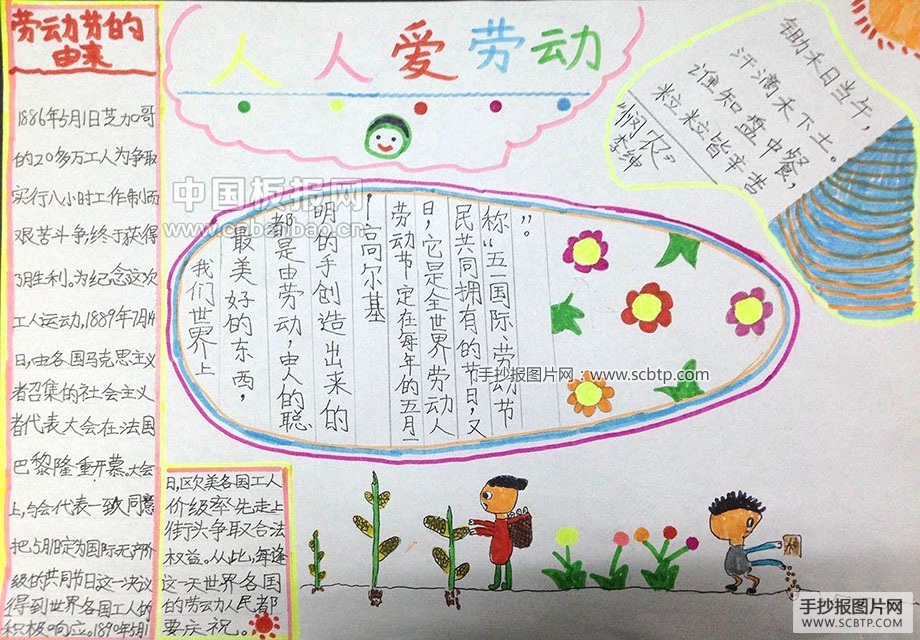 劳动节的
由来
1886年5月1日芝加哥
的20多万工人为争取
实行八小时工作制而
艰苦斗争,终于获得
了胜利。为纪念这次
工人运动,1889年7月14
日,由各国马克思主义
者召集的社会主义
者代表大会在法国
巴黎隆重开幕。大会
上,与会代表一致同意
把5月1日定为国际无产阶
级的共同节日这一决议
得到世界各国工人的
积极响应。1890年5月1
日,欧美各国工人
价级率先走上
街头争取合法
权益。从此,每逢
这一天世界各国
的劳动人民都
要庆祝。
人人爱劳动
我们世界上
最美好的东西,
都是由劳动,由人的聪
明的手创造出来的
—高尔基
劳动节定在每年的五月一
日,它是全世界劳动人
民共同拥有的节日,又
称“五一国际劳动节
”。
锄禾日当午,
汗滴禾下土。
谁知盘中餐,
粒粒皆辛苦
“悯农”
李绅
中国板报网
www.cnbanbao.cn
手抄报图片网:www.scbtp.com
手抄报图片网
WWW.SCBTP.COM